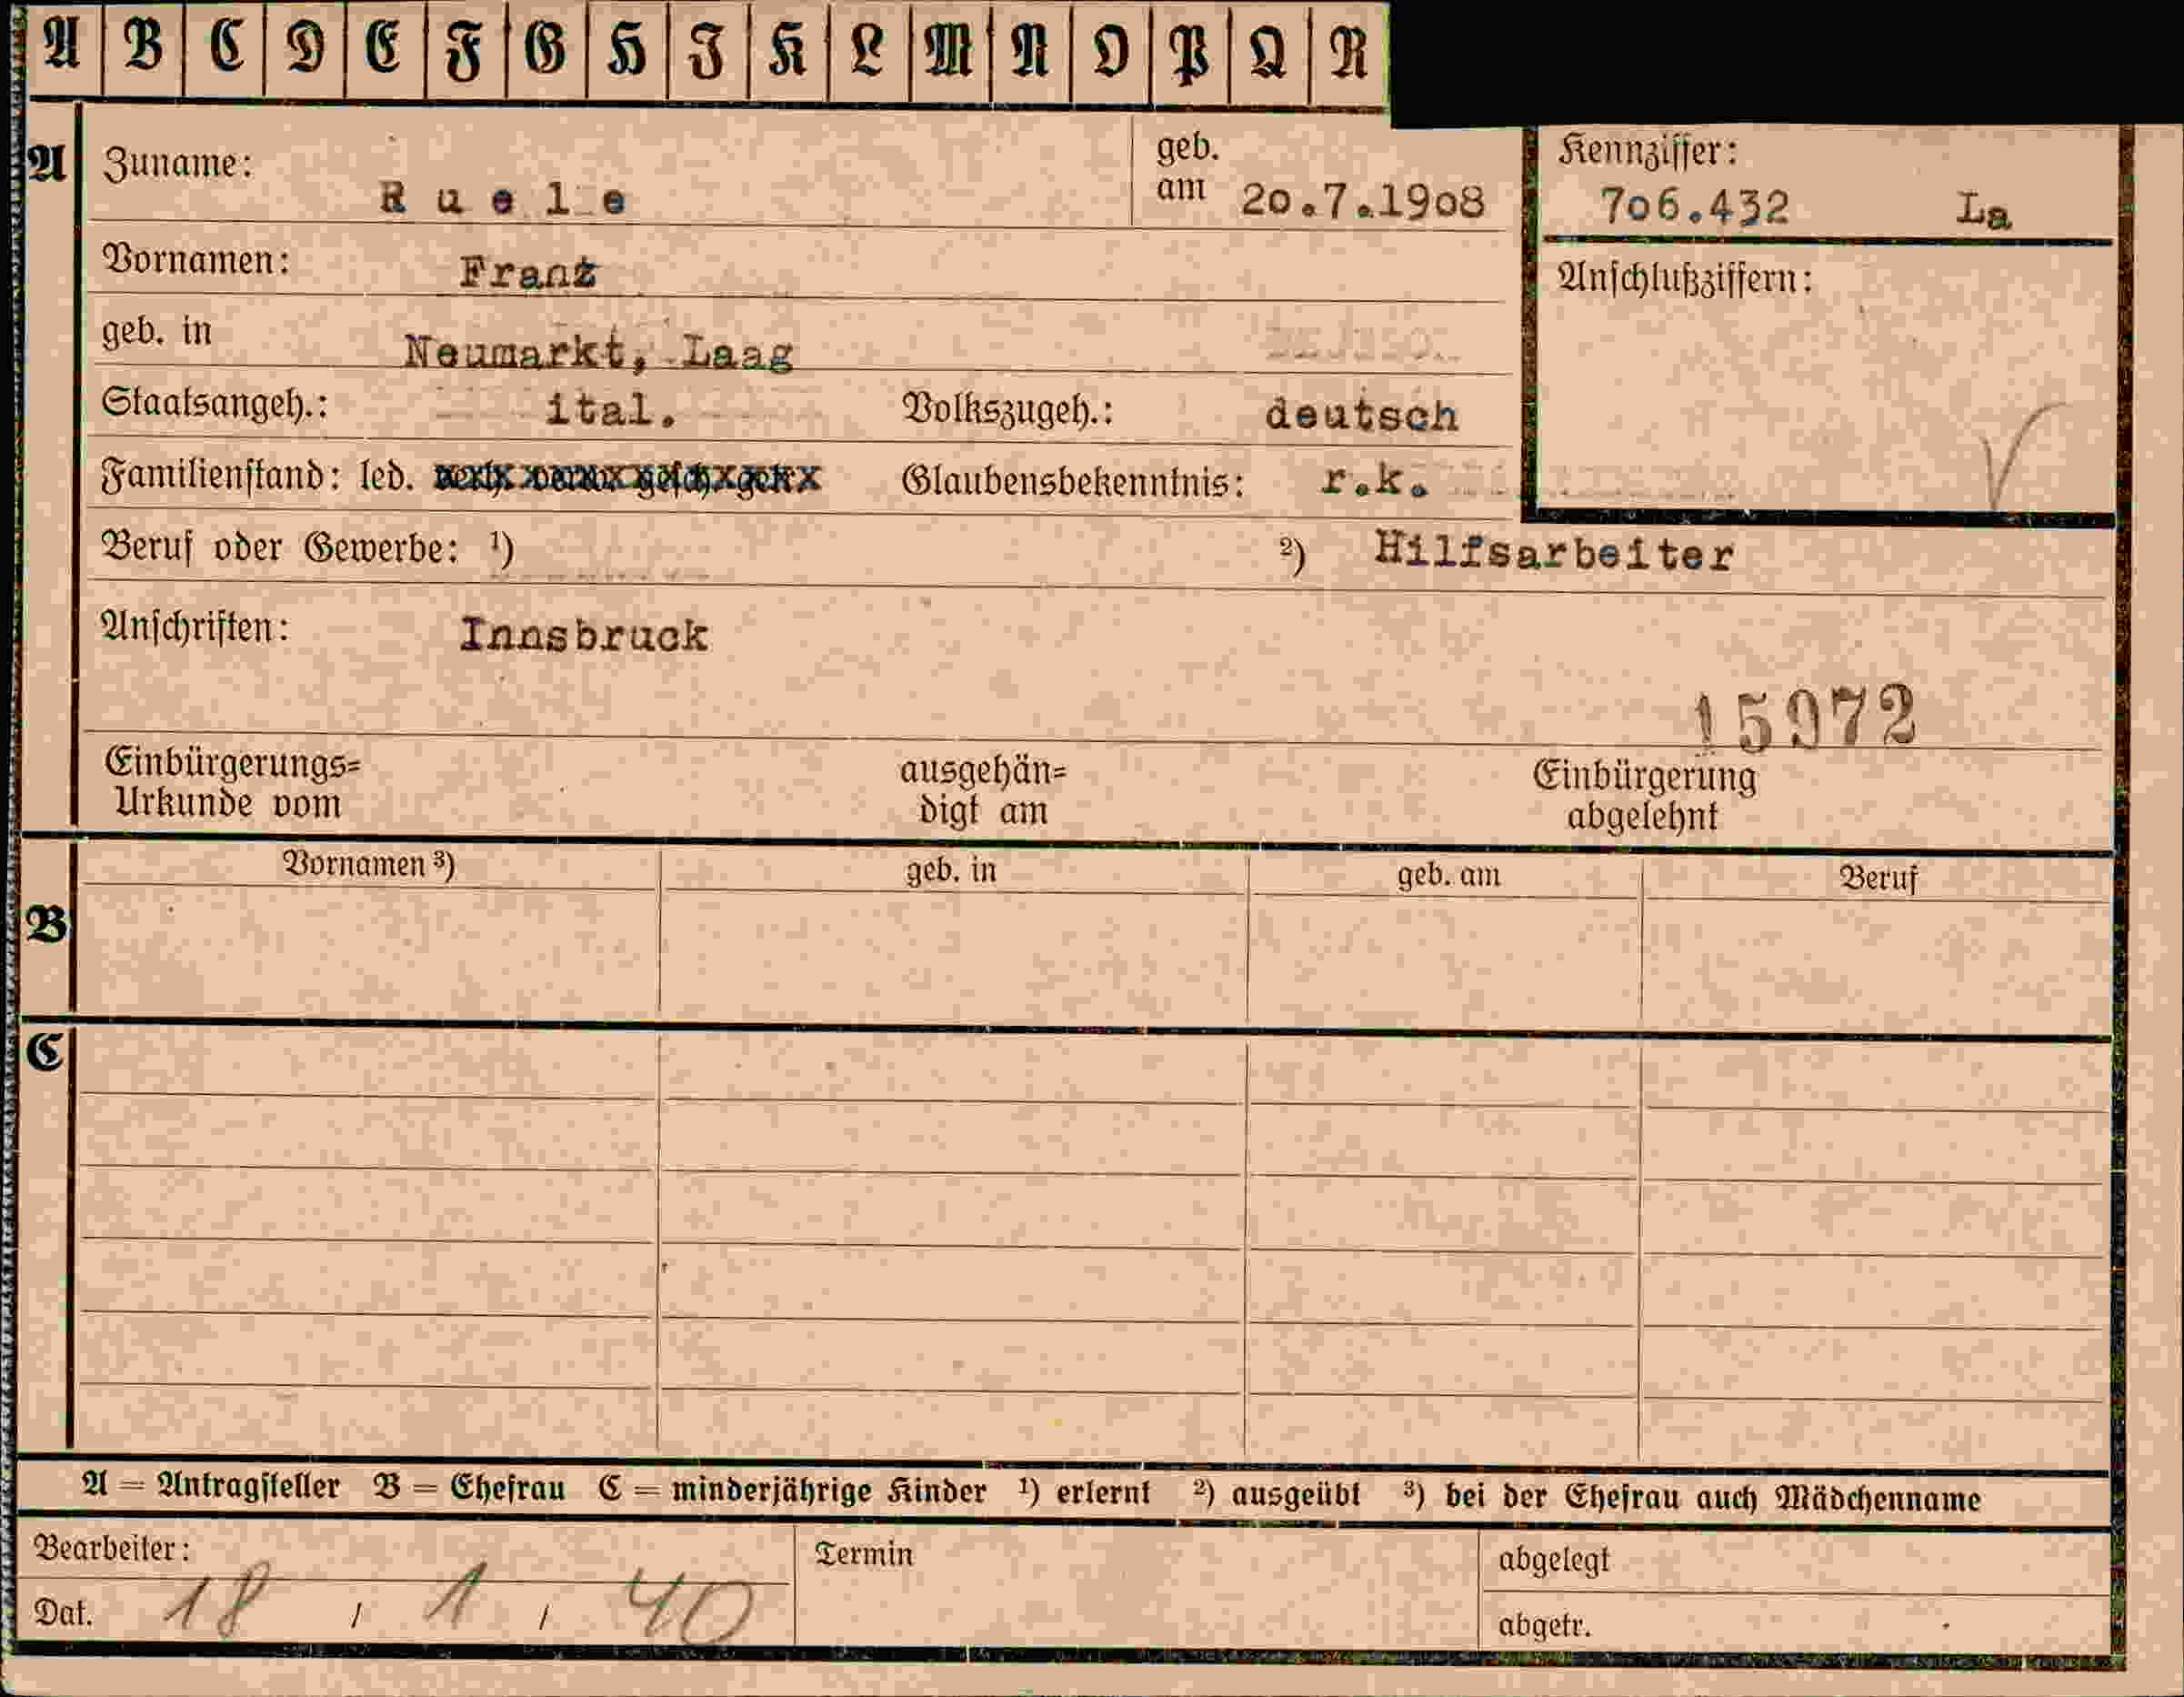 A B C D E F G H I K L M N O P Q R
A Zuname: Ruele geb. am 20.7.1908 Kennziffer: 706.432 La
Vornamen: Franz Anschlußziffern:
geb. in Neumarkt, Laag
Staatsangeh.: ital. Volkszugeh.: deutsch
Familienstand: led. Glaubensbekenntnis: r.k.
Beruf oder Gewerbe: ¹) ²) Hilfsarbeiter
Anschriften: Innsbruck
15972
Einbürgerungs= ausgehän= Einbürgerung
Urkunde vom digt am abgelehnt
Vornamen ³) geb. in geb. am Beruf
B
C
A = Antragsteller B = Ehefrau C = minderjährige Kinder ¹) erlernt ²) ausgeübt ³) bei der Ehefrau auch Mädchenname
Bearbeiter: Termin abgelegt
Dat. 18 / 1 / 40 abgetr.